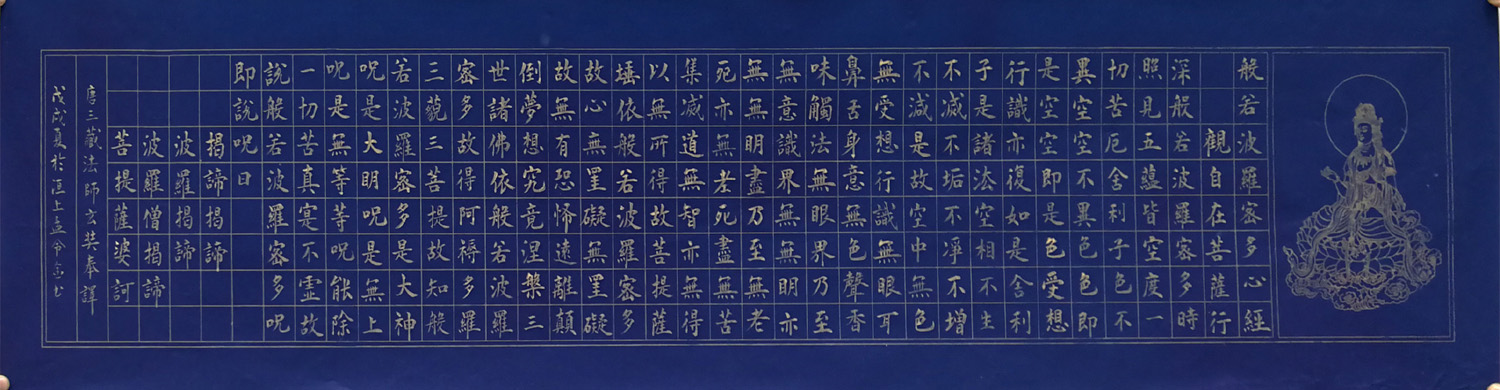 般若波羅密多心經
觀自在菩薩行
深般若波羅密多時
照見五蘊皆空度一
切苦厄舍利子色不
異空空不異色色即
是空空即是色受想
行識亦復如是舍利
子是諸法空相不生
不滅不垢不淨不增
不減是故空中無色
無受想行識無眼耳
鼻舌身意無色聲香
味觸法無眼界乃至
無意識界無無明亦
無無明盡乃至無老
死亦無老死盡無苦
集滅道無智亦無得
以無所得故菩提薩
埵依般若波羅密多
故心無罣礙無罣礙
故無有恐怖遠離顛
倒夢想究竟涅槃三
世諸佛依般若波羅
密多故得阿耨多羅
三藐三菩提故知般
若波羅密多是大神
呪是大明呪是無上
呪是無等等呪能除
一切苦真寔不虛故
說般若波羅密多呪
即說呪曰
揭諦揭諦
波羅揭諦
波羅僧揭諦
菩提薩婆訶
唐三藏法師玄奘奉譯
戊戌夏於滬上